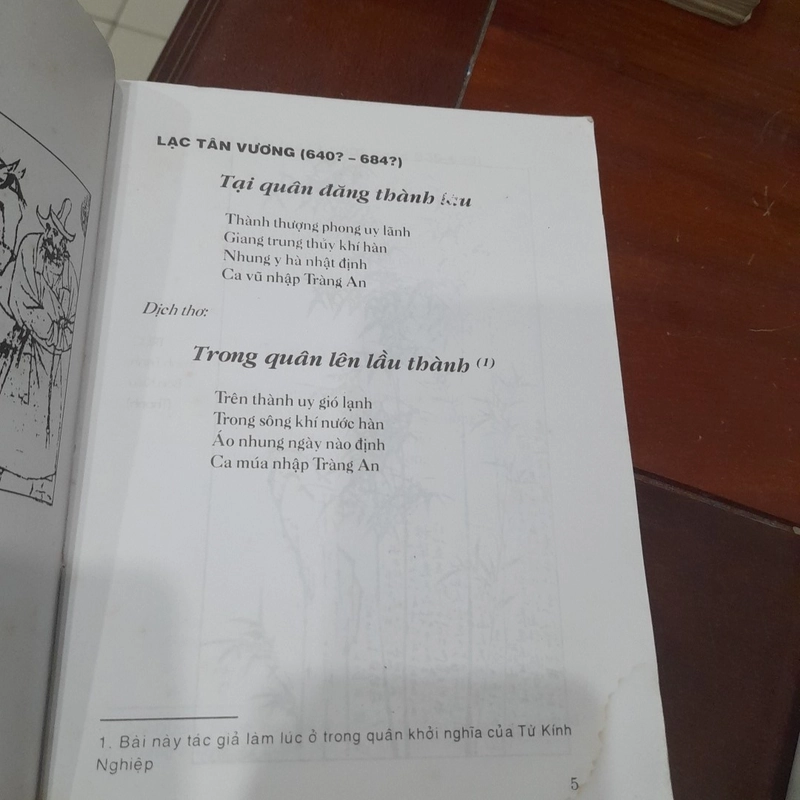 LẠC TÂN VƯƠNG (640? – 684?)
Tại quân đăng thành lâu
Thành thượng phong uy lãnh
Giang trung thủy khí hàn
Nhung y hà nhật định
Ca vũ nhập Tràng An
Dịch thơ:
Trong quân lên lầu thành (1)
Trên thành uy gió lạnh
Trong sông khí nước hàn
Áo nhung ngày nào định
Ca múa nhập Tràng An
1. Bài này tác giả làm lúc ở trong quân khởi nghĩa của Từ Kính
Nghiệp
5